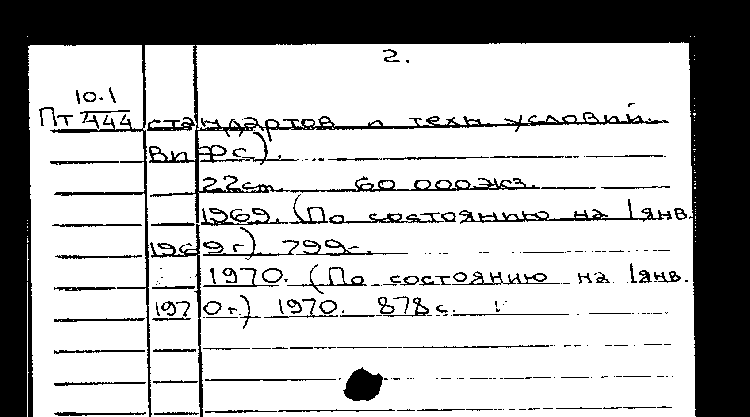 2.
10.1
Пт 444 стандартов и техн. условий.
ВИФС).
22см. 60 000 экз.
1969. (По состоянию на 1 янв.
1969 г). 799 с.
1970. (По состоянию на 1 янв.
1970 г.) 1970. 878 с.